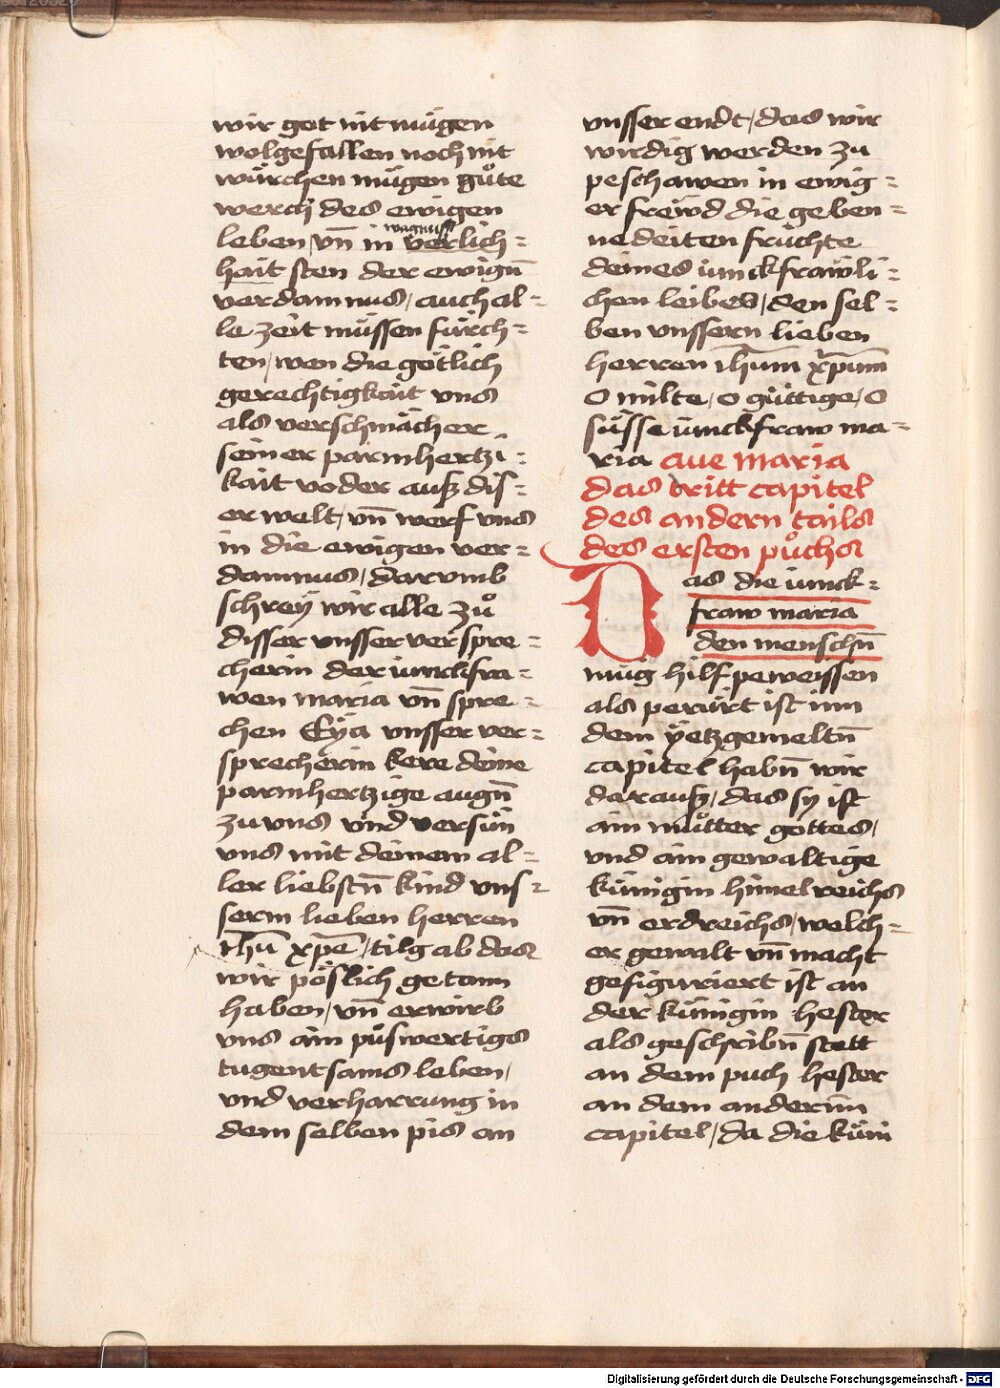 wir got nit mügen
wolgefallen noch nit
würchen mügen gůte
werch des ewigen
leben / vn̄ in verlich⸗
wagnuß
hait sten der ewign̄
verdamnus / auch al⸗
le zeit müssen fürch⸗
ten / wen die götlich
gerechtigkait vns
als verschmächer
seiner parmhertzi⸗
kait voder auß dis⸗
er welt / vn̄ werf vns
in die ewigen ver⸗
damnus / darvmb
schrey wir alle zů
disser vnsser verspre⸗
cherin der iunckfra⸗
wen maria vn̄ spre⸗
chen Eya vnsser ver⸗
sprecherin kere deine
parmhertzige augn̄
zu vns vnd versün
vns mit deinem al⸗
ler liebstn̄ kind vns⸗
serm lieben herren
ihū xp̄e / tilg ab das
wir pöslich getann
haben / vn̄ erwirb
vns ain půswertigs
tugentsams leben /
vnd verharrung in
dem selben pis an
vnsser endt / das wir
wirdig werden zu
peschawen in ewig⸗
er frewd die geben⸗
nedeiten früchte
deines iunckfrawli⸗
chen leibes / den sel⸗
ben vnssern lieben
herren ihūm xp̄um
O milte / o güttige / O
süsse iunckfraw ma⸗
ria aue maria
das tritt capitel
des andern tails
des ersten půchs
Das die iunck⸗
fraw maria
den menschn̄
mug hilf peweissen
als perürt ist inn
dem yetzgemeltn̄
capitel habn̄ wir
darauß / das sy ist
ain můtter gottes /
vnd ain gewaltige
künigin himelreichs
vn̄ erdreichs / welch⸗
er gewalt vn̄ macht
gefiguriert ist an
der künigin hester
als geschribn̄ stett
an dem puch hester
an dem andernn
capitel / da die küni
Digitalisierung gefördert durch die Deutsche Forschungsgemeinschaft - DFG